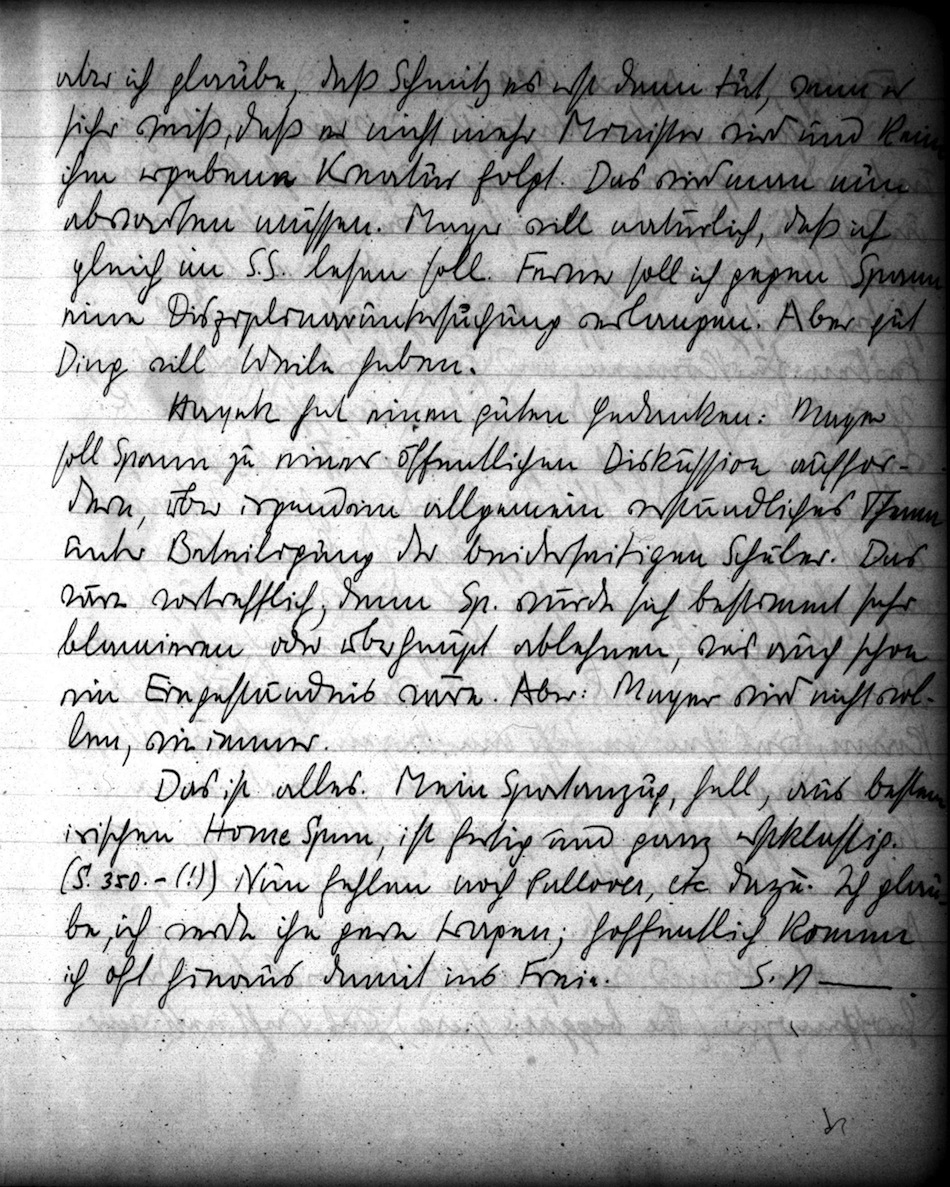 aber ich glaube, daß Schmitz es erst dann tut, wenn er
sicher weiß, daß er nicht mehr Minister wird und kein
ihm ergebene Kreatur folgt. Das wird man nun
abwarten müssen. Mayer will natürlich, daß ich
gleich im S.S. lesen soll. Ferner soll ich gegen Spann
eine Disziplinaruntersuchung verlangen. Aber gut
Ding will Weile haben.
Hayek hat einen guten Gedanken: Mayer
soll Spann zu einer öffentlichen Diskussion auffor-
dern, über irgendein allgemein verständliches Thema
unter Beteiligung der beiderseitigen Schüler. Das
wäre vortrefflich, denn Sp. würde sich bestimmt sehr
blamieren oder überhaupt ablehnen, was auch schon
ein Eingeständnis wäre. Aber: Mayer wird nicht wol-
len, wie immer.
Das ist alles. Mein Sportanzug, hell, aus bestem
irischen Home Spun, ist fertig und ganz erstklassig.
(S. 350.- (!)) Nun fehlen noch Pullover, etc dazu. Ich glau
be, ich werde ihn gern tragen; hoffentlich komme
ich oft hinaus damit ins Freie. S. N